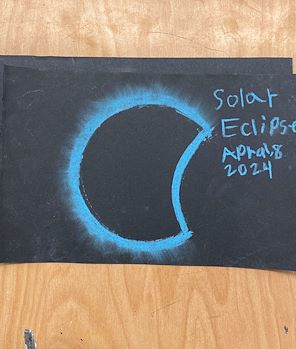 Solar
Eclipse
Apral8
2024